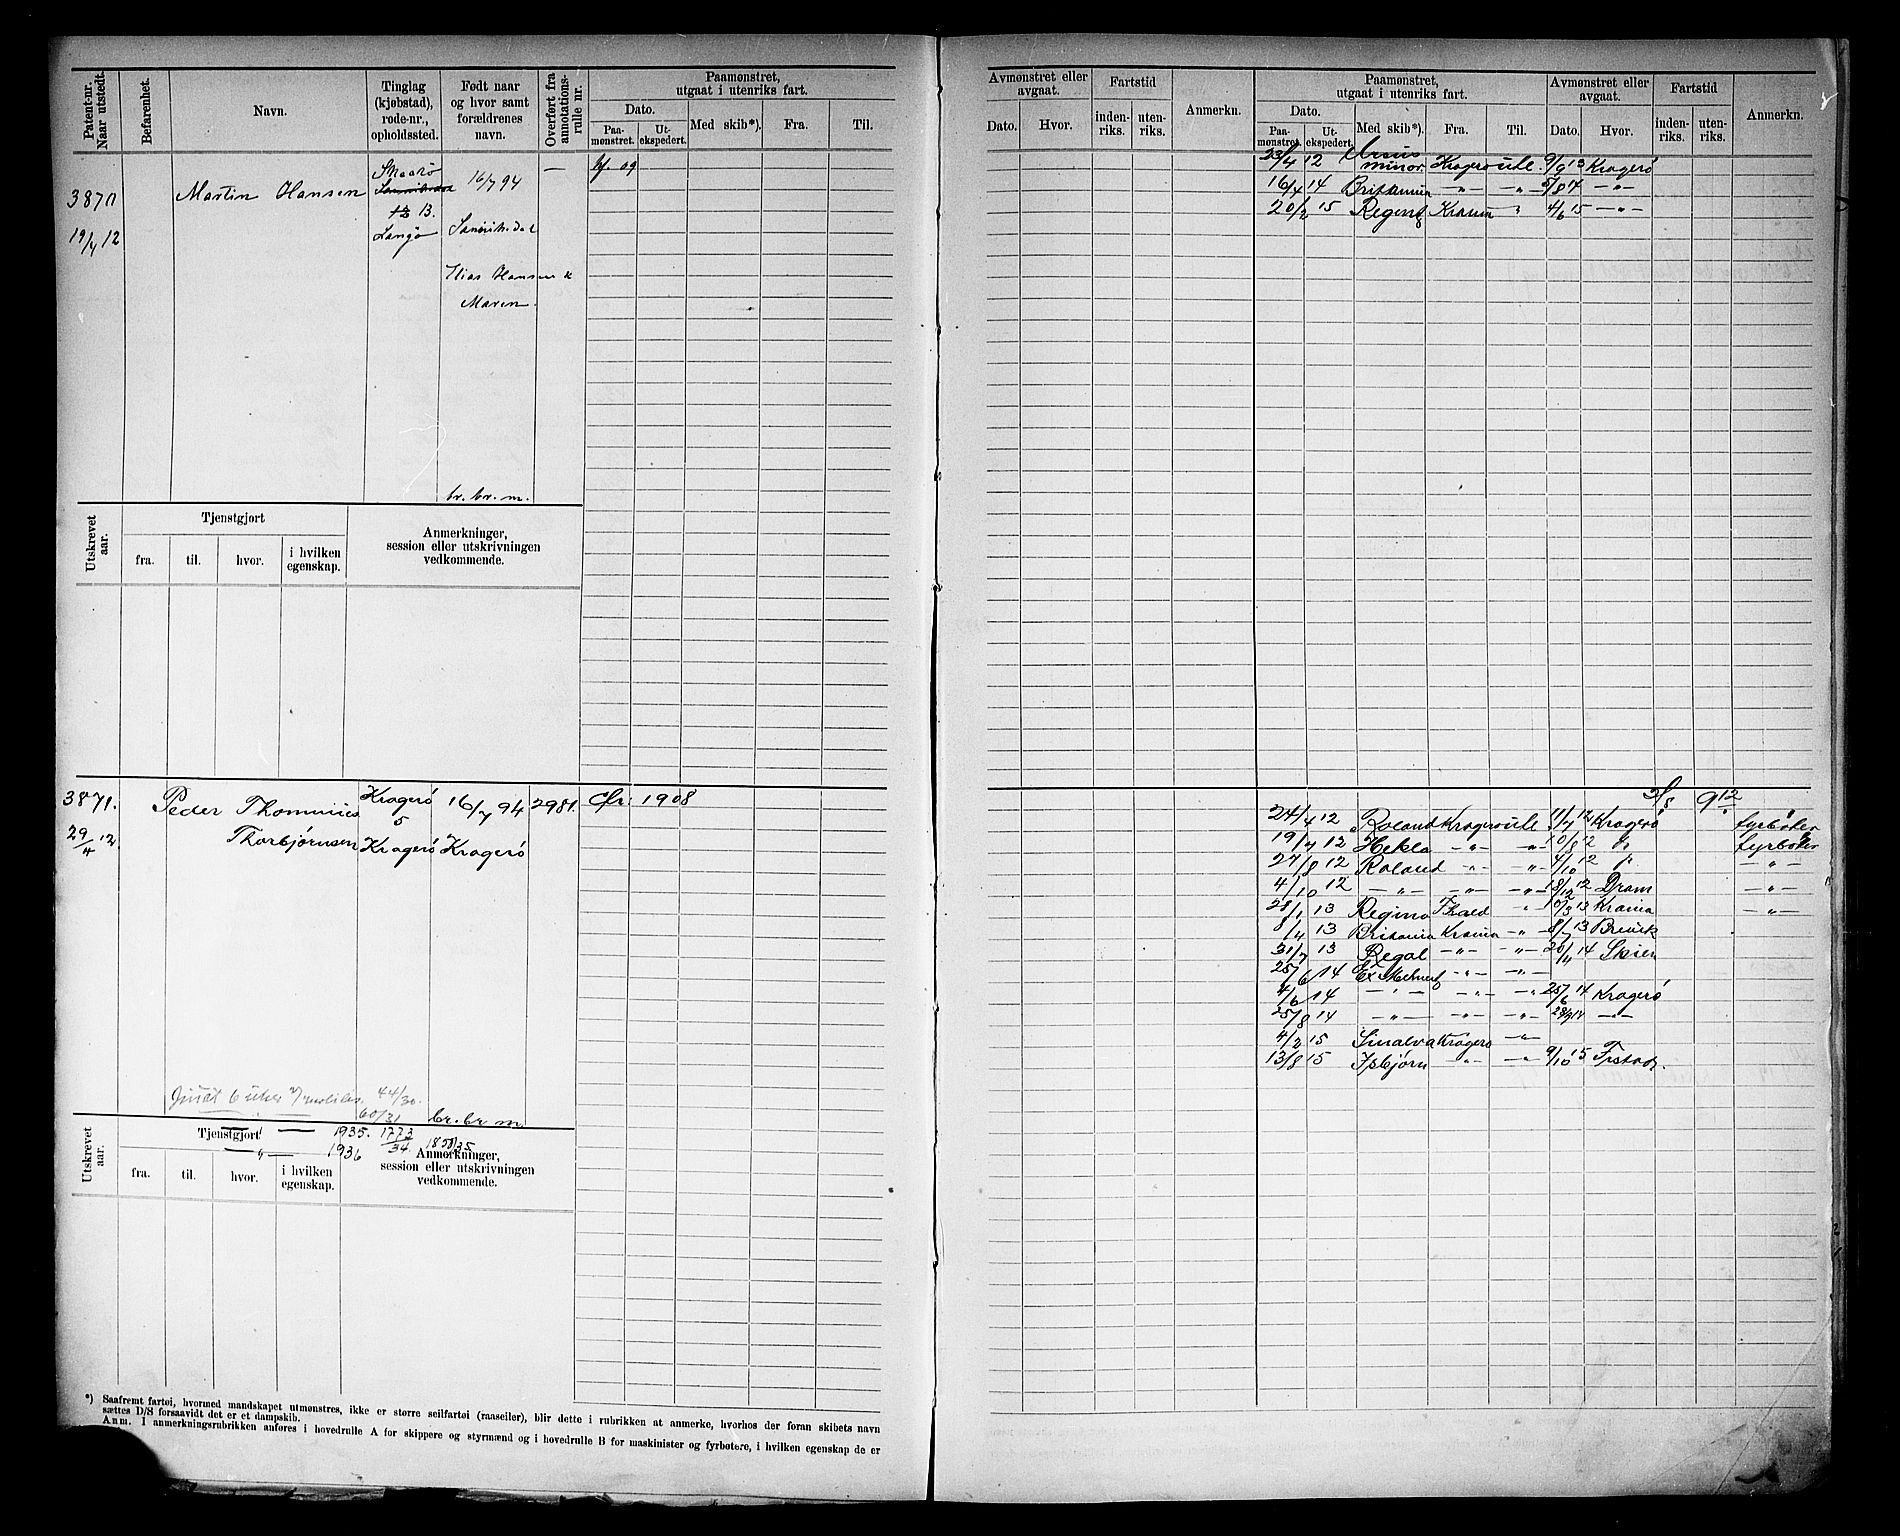 Patent-nr. Naar utstedt.
Befarenhet.
Navn.
Tinglag (kjøbstad), rode-nr., opholdssted.
Født naar og hvor samt forældrenes navn.
Overført fra annotations-rulle nr.
Paamønstret, utgaat i utenriks fart.
Dato.
Paa-mønstret.
Ut-ekspedert.
Med skib*).
Fra.
Til.
Avmønstret eller avgaat.
Dato.
Hvor.
Fartstid
inden-riks.
uten-riks.
Anmerkn.
Paamønstret, utgaat i utenriks fart.
Dato.
Paa-mønstret.
Ut-ekspedert.
Med skib*).
Fra.
Til.
Avmønstret eller avgaat.
Dato.
Hvor.
Fartstid
inden-riks.
uten-riks.
Anmerkn.
3870
19/4 12
Martin Hansen
Skaarø
13.
Langø
16/7 94
Sannikedal
Elias Hansen &
Maren.
br. br. m.
—
23/4 12 Ursus minor Kragerø utl. 9/9 13 Kragerø
16/4 14 Brittannia -"- -"- 5/8 14 -"-
20/2 15 Regent Krania " 4/6 15 -"-
Utskrevet aar.
Tjenstgjort
fra.
til.
hvor.
i hvilken egenskap.
Anmerkninger, session eller utskrivningen vedkommende.
3871.
29/4 12.
Peder Thommius
Thorbjørnsen
Kragerö
5
Kragerö
16/7 94
Kragerö
2981.
Chr: 1908
br. br m
44/30.
60/31
1935. 1773/34. 1850/35.
1936
9 12
24/4 12 Roland Kragerø utl. 11/7 12 Kragerø fyrbøter
19/7 12 Hekla -"- -"- 10/8 12 " fyrbøter
27/8 12 Roland -"- -"- 4/10 12 " -"-
4/10 12 -"- -"- -"- 18/12 12 Dram -"-
28/1 13 Regina Fhald " 10/3 13 Krania -"-
8/4 13 Britania Krania -"- 8/7 13 Brevik
31/7 13 Regal -"- -"- 20/11 14 Skien
25/6 14 -"- -"-
4/6 14 -"- -"- -"- 25/6 14 Kragerø
25/8 14 -"- -"- -"- -"-
4/2 15 Kragerø -"-
13/8 15 Isbjørn -"- -"- 9/10 15 Frstad.
Utskrevet aar.
Tjenstgjort
fra.
til.
hvor.
i hvilken egenskap.
Anmerkninger, session eller utskrivningen vedkommende.
*) Saafremt fartøi, hvormed mandskapet utmønstres, ikke er større seilfartøi (raaseiler), blir dette i rubrikken at anmerke, hvorhos der foran skibets navn
sættes D/S forsaavidt det er et dampskib.
Anm. I anmerkningsrubrikken anføres i hovedrulle A for skippere og styrmænd og i hovedrulle B for maskinister og fyrbøtere, i hvilken egenskap de er